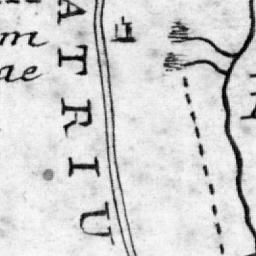 m
ae
ATRIU